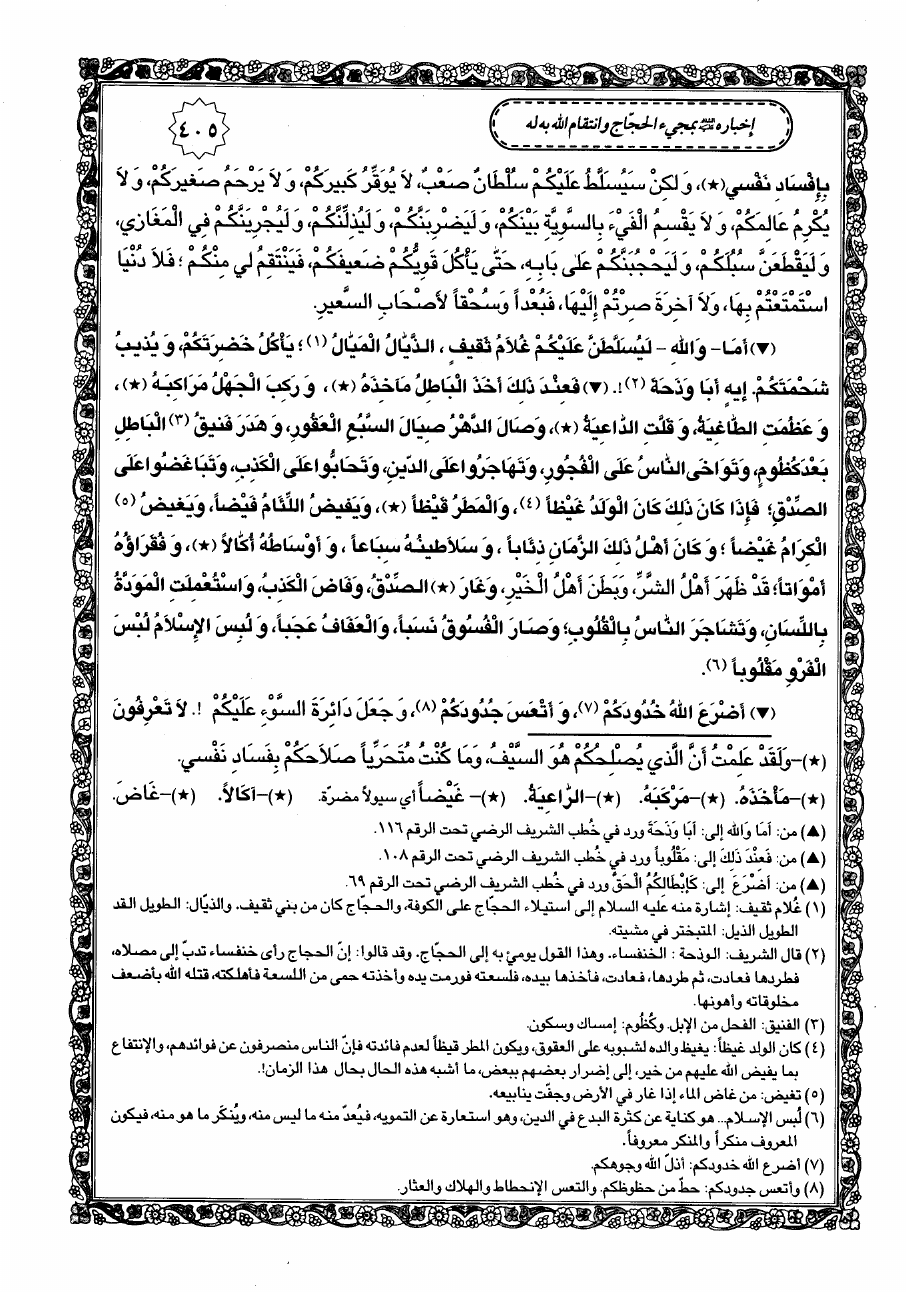 إخباره عليه السلام بمجيء الحجّاج وانتقام الله به له
٤٠٥
بِإِفْسَادِ نَفْسي(★)، وَ لكِنْ سَيُسَلَّطُ عَلَيْكُمْ سُلْطَانٌ صَعْبٌ، لاَ يُوَقِّرُ كَبيرَكُمْ، وَ لاَ يَرْحَمُ صَغيرَكُمْ، وَ لاَ
يُكْرِمُ عَالِمَكُمْ، وَ لاَ يَقْسِمُ الْفَيْءَ بِالسَّوِيَّةِ بَيْنَكُمْ، وَ لَيَضْرِبَنَّكُمْ، وَ لَيُذِلَّنَّكُمْ، وَ لَيُجْرِيَنَّكُمْ فِي الْمَغَازي،
وَ لَيَقْطَعَنَّ سُبُلَكُمْ، وَ لَيَحْجُبَنَّكُمْ عَلى بَابِهِ، حَتّى يَأْكُلَ قَوِيُّكُمْ ضَعيفَكُمْ، فَيَنْتَقِمُ لي مِنْكُمْ ؛ فَلاَ دُنْيَا
اسْتَمْتَعْتُمْ بِهَا، وَلاَ آخِرَةَ صِرْتُمْ إِلَيْهَا، فَبُعْداً وَسُحْقاً لأَصْحَابِ السَّعيرِ.
(▼) أَمَا - وَاللهِ - لَيُسَلَّطَنَّ عَلَيْكُمْ غُلاَمُ ثَقيفٍ، الذَّيَّالُ الْمَيَّالُ (١)؛ يَأْكُلُ خَضِرَتَكُمْ، وَ يُذيبُ
شَحْمَتَكُمْ. إيهٍ أَبَا وَذَحَةَ (٢)!. (▼) فَعِنْدَ ذَلِكَ أَخَذَ الْبَاطِلُ مَآخِذَهُ (★)، وَ رَكِبَ الْجَهْلُ مَرَاكِبَهُ (★)،
وَ عَظُمَتِ الطَّاغِيَةُ، وَ قَلَّتِ الدَّاعِيَةُ (★)، وَصَالَ الدَّهْرُ صِيَالَ السَّبُعِ الْعَقُورِ، وَ هَدَرَ فَنيقُ (٣) الْبَاطِلِ
بَعْدَ كُظُومٍ، وَ تَوَاخَى النَّاسُ عَلَى الْفُجُورِ، وَ تَهَاجَرُوا عَلَى الدّينِ، وَ تَحَابُّوا عَلَى الْكَذِبِ، وَ تَبَاغَضُوا عَلَى
الصِّدْقِ؛ فَإِذَا كَانَ ذَلِكَ كَانَ الْوَلَدُ غَيْظاً (٤)، وَالْمَطَرُ قَيْظاً (★)، وَيَفيضُ اللِّئَامُ فَيْضاً، وَيَغيضُ (٥)
الْكِرَامُ غَيْضاً ؛ وَ كَانَ أَهْلُ ذَلِكَ الزَّمَانِ ذِئَاباً ، وَ سَلاَطينُهُ سِبَاعاً ، وَ أَوْسَاطُهُ أُكَالاً (★)، وَ فُقَرَاؤُهُ
أَمْوَاتاً؛ قَدْ ظَهَرَ أَهْلُ الشَّرِّ، وَبَطَنَ أَهْلُ الْخَيْرِ، وَ غَارَ (★) الصِّدْقُ، وَفَاضَ الْكَذِبُ، وَ اسْتُعْمِلَتِ الْمَوَدَّةُ
بِاللِّسَانِ، وَ تَشَاجَرَ النَّاسُ بِالْقُلُوبِ؛ وَصَارَ الْفُسُوقُ نَسَباً، وَالْعَفَافُ عَجَباً، وَ لُبِسَ الإِسْلاَمُ لُبْسَ
الْفَرْوِ مَقْلُوباً (٦).
(▼) أَضْرَعَ اللهُ خُدُودَكُمْ (٧)، وَ أَتْعَسَ جُدُودَكُمْ (٨)، وَ جَعَلَ دَائِرَةَ السَّوْءِ عَلَيْكُمْ !. لاَ تَعْرِفُونَ
(★)-وَلَقَدْ عَلِمْتُ أَنَّ الَّذي يُصْلِحُكُمْ هُوَ السَّيْفُ، وَمَا كُنْتُ مُتَحَرِّياً صَلاَحَكُمْ بِفَسَادِ نَفْسي.
(★)-مَأْخَذَهُ. (★)-مَرْكَبَهُ. (★)-الرَّاعِيَةُ. (★)- غَيْضاً أي سيولاً مضرّة. (★)-آكَالاً. (★)-غَاضَ.
(▲) من: أَمَا وَالله إلى: أَبَا وَذَحَةَ ورد في خُطب الشريف الرضي تحت الرقم ١١٦.
(▲) من: فَعِنْدَ ذَلِكَ إلى: مَقْلُوباً ورد في خُطب الشريف الرضي تحت الرقم ١٠٨.
(▲) من: أَضْرَعَ إلى: كَإِبْطَالِكُمُ الْحَقَّ ورد في خُطب الشريف الرضي تحت الرقم ٦٩.
(١) غُلام ثقيف: إشارة منه عليه السلام إلى استيلاء الحجّاج على الكوفة، والحجّاج كان من بني ثقيف. والذيّال: الطويل القد
الطويل الذيل: المتبختر في مشيته.
(٢) قال الشريف: الوذحة : الخنفساء. وهذا القول يومئ به إلى الحجّاج. وقد قالوا: إنّ الحجاج رأى خنفساء تدبّ إلى مصلاه،
فطردها فعادت، ثم طردها، فعادت، فأخذها بيده، فلسعته فورمت يده وأخذته حمى من اللسعة فأهلكته، قتله الله بأضعف
مخلوقاته وأهونها.
(٣) الفنيق: الفحل من الإبل. وكُظُوم: إمساك وسكون.
(٤) كان الولد غيظاً: يغيظ والده لشبوبه على العقوق، ويكون المطر قيظاً لعدم فائدته فإنّ الناس منصرفون عن فوائدهم، والإنتفاع
بما يفيض الله عليهم من خير، إلى إضرار بعضهم ببعض، ما أشبه هذه الحال بحال هذا الزمان!.
(٥) تغيض: من غاض الماء إذا غار في الأرض وجفّت ينابيعه.
(٦) لُبس الإسلام.. هو كناية عن كثرة البدع في الدين، وهو استعارة عن التمويه، فيُعدّ منه ما ليس منه، ويُنكَر ما هو منه، فيكون
المعروف منكراً والمنكر معروفاً.
(٧) أضرع الله خدودكم: أذلّ الله وجوهكم.
(٨) وأتعس جدودكم: حطّ من حظوظكم. والتعس الإنحطاط والهلاك والعثار.